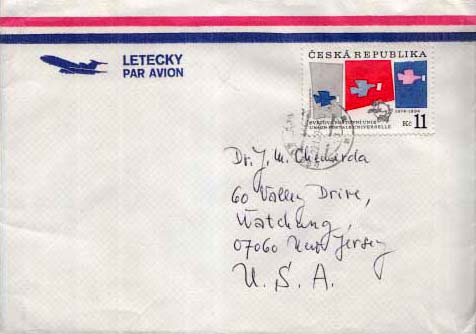 LETECKY
PAR AVION
ČESKÁ REPUBLIKA
1874-1994
SVĚTOVÁ POŠTOVNÍ UNIE
UNION POSTALE UNIVERSELLE
Kč 11
Dr. J. M.
60 Valley Drive,
Watchung,
07060 New Jersey
U. S. A.